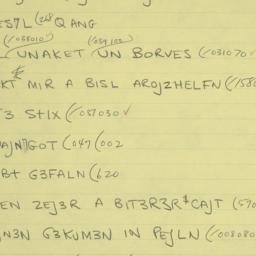 ES7L (268 QANG
(038010) (039100
UNAKET UN BORVES (/031070
KT MIR A BISL AROJZHELFN (/158
T3 STIX (/057030 ✓
AJN)GOT (047 (002
B+ G3FALN (620
EN ZEJ3R A BIT3R3R $CAJT (590
N3N G3KUM3N IN PEJLN (/008080